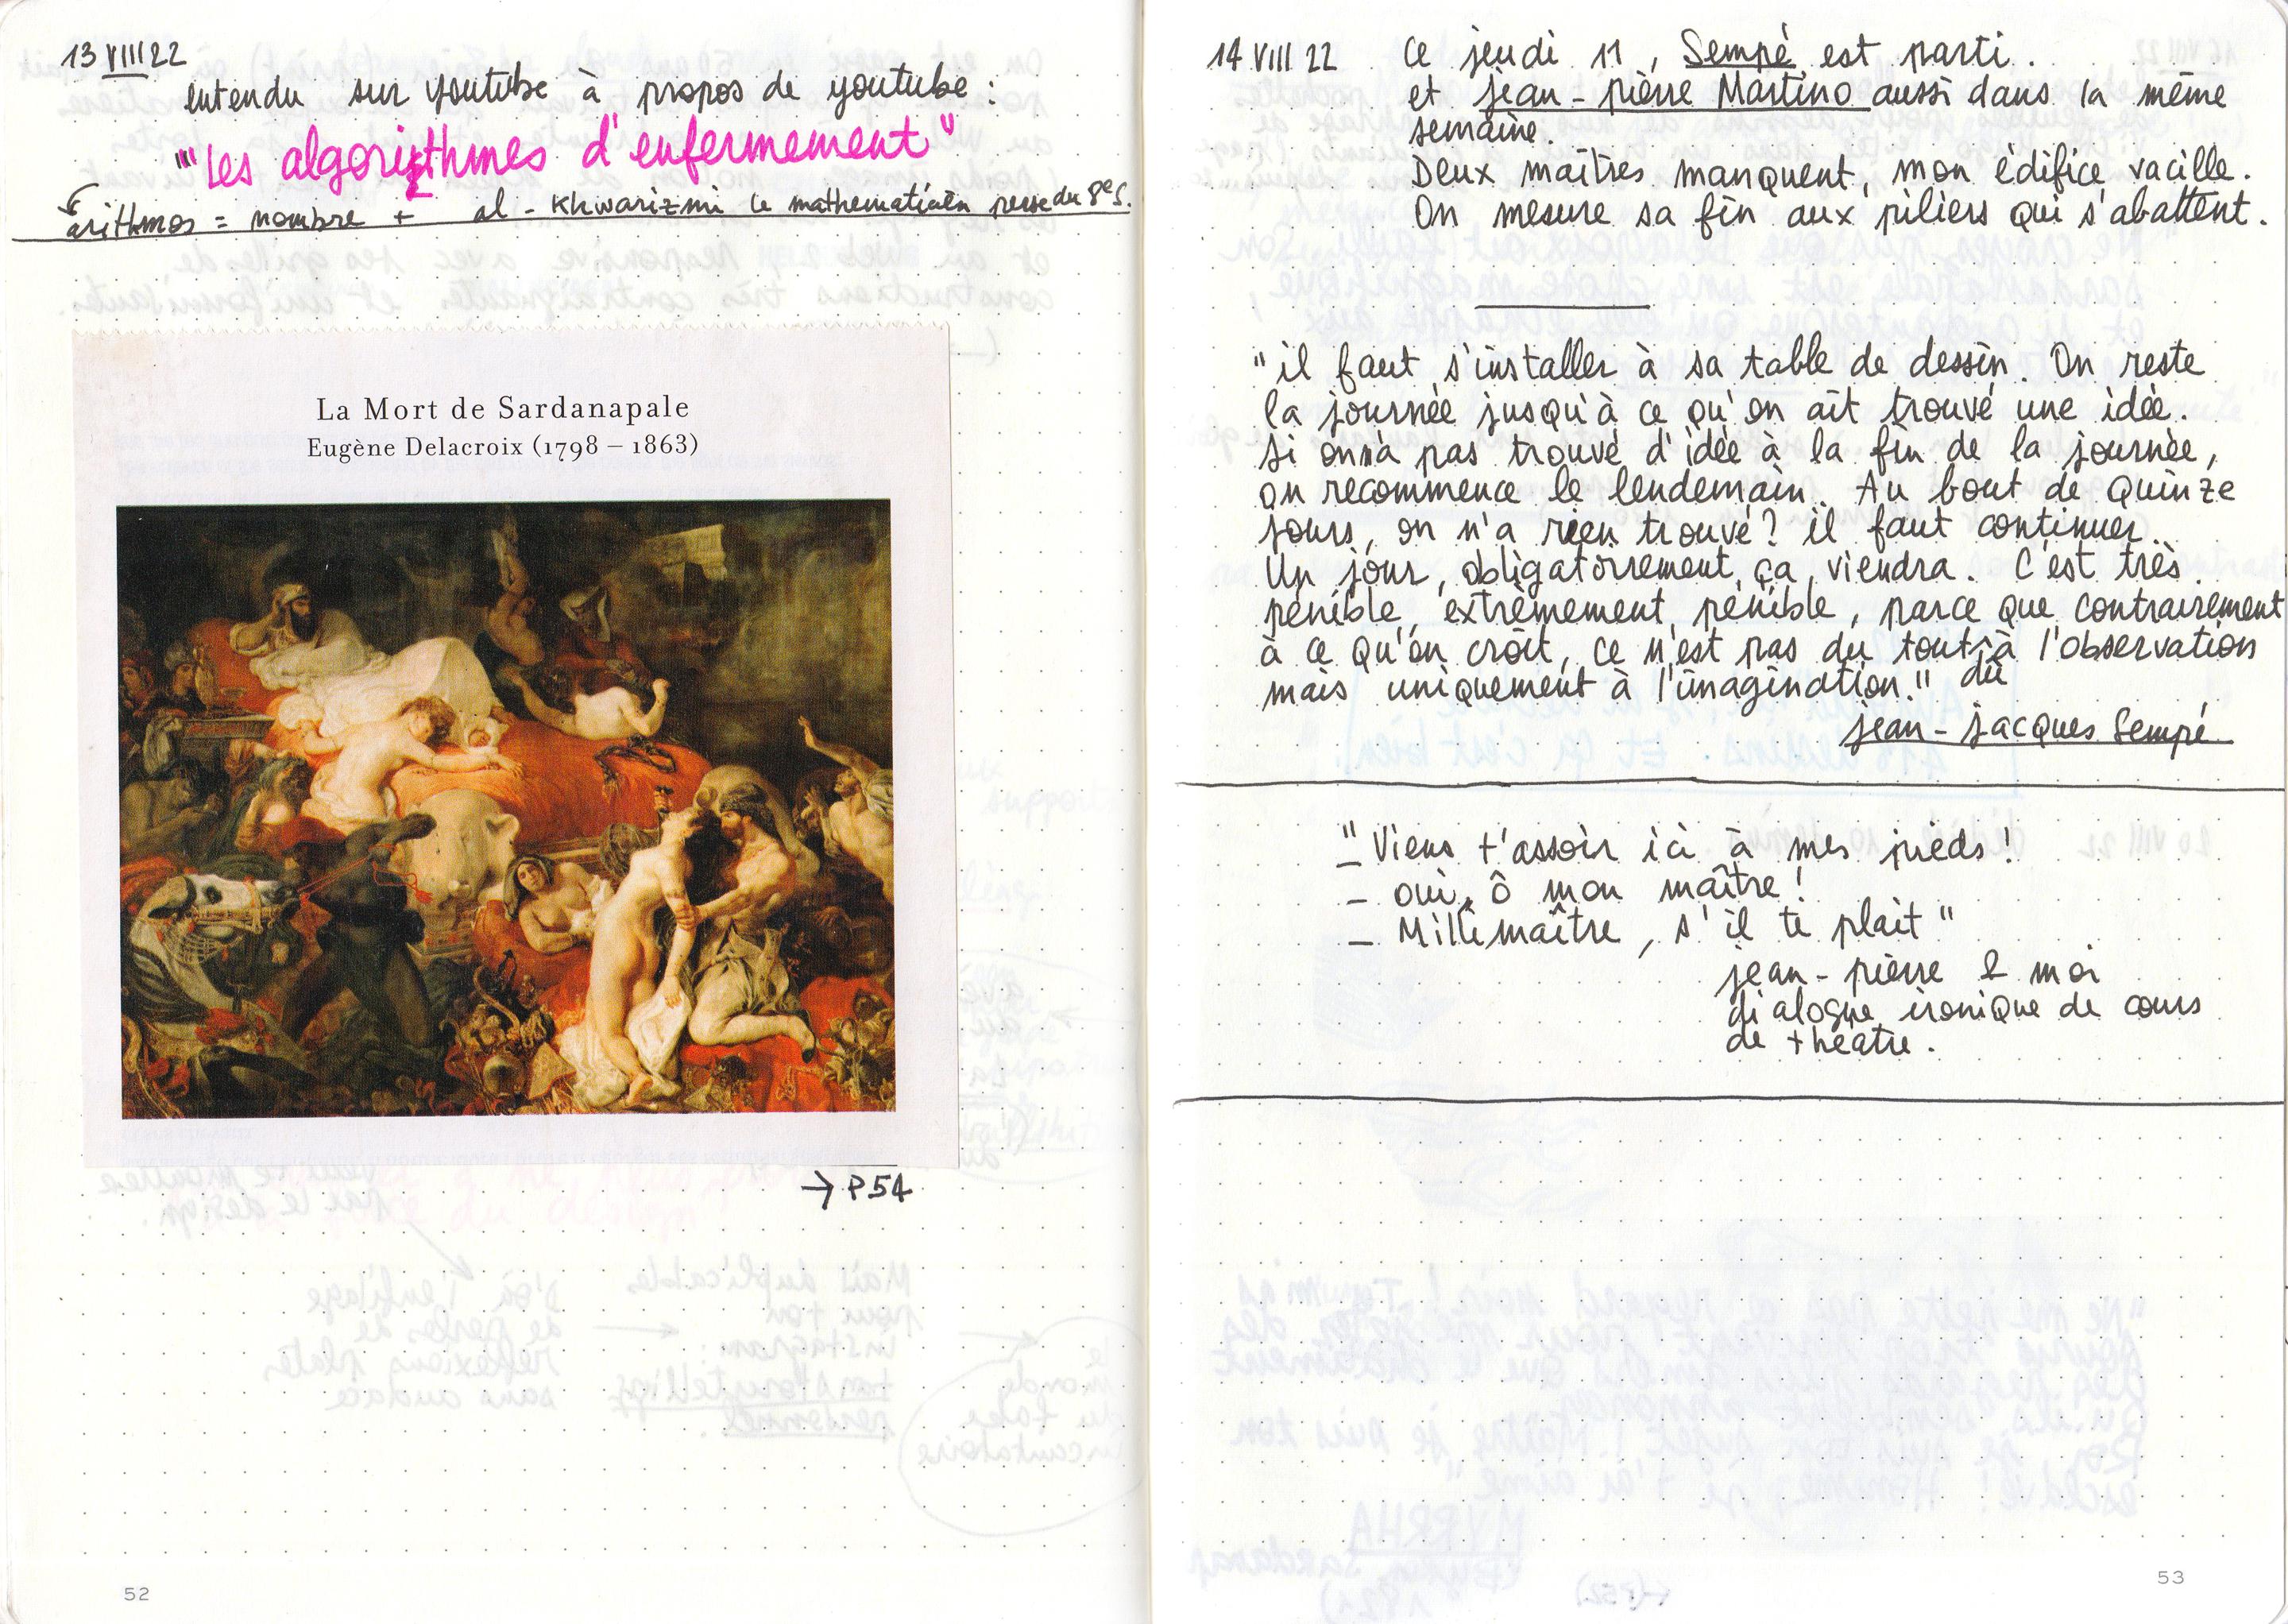 13 VIII 22
entendu sur youtube à propos de youtube :
"Les algorithmes d'enfermement"
arithmos = nombre + al-Khwarizmi le mathematicien perse du 8e s.
La Mort de Sardanapale
Eugène Delacroix (1798 – 1863)
→ P54
52
14 VIII 22 Ce jeudi 11, Sempé est parti.
et jean-pierre Martino aussi dans la même
semaine.
Deux maîtres manquent, mon édifice vacille.
On mesure sa fin aux piliers qui s'abattent.
"il faut s'installer à sa table de dessin. On reste
la journée jusqu'à ce qu'on ait trouvé une idée.
si on n'a pas trouvé d'idée à la fin de la journée,
on recommence le lendemain. Au bout de quinze
jours, on n'a rien trouvé ? il faut continuer.
Un jour, obligatoirement, ça viendra. C'est très
pénible, extrêmement pénible, parce que contrairement
à ce qu'on croit, ce n'est pas du tout dû à l'observation
mais uniquement à l'imagination."
jean-jacques Sempé
"– Viens t'assoir ici à mes pieds !
– oui, ô mon maître !
– Millimaître, s'il te plait"
jean-pierre & moi
dialogue ironique de cours
de théatre.
53